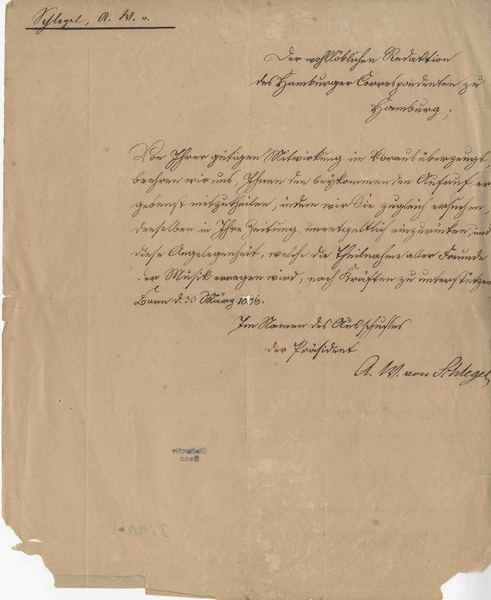 Schlegel, A. W. v.
Der wohllöblichen Redaktion
des Hamburger Correspondenten zu
Hamburg;
Von Ihrer gütigen Mitwirkung im Voraus überzeugt,
beehren wir uns, Ihnen den beykommenden Aufruf er
gebenst mitzutheilen, indem wir Sie zugleich ersuchen,
denselben in Ihre Zeitung unentgeltlich einzurücken, und
diese Angelegenheit, welche die Theilnahme aller Freunde
der Musik erregen wird, nach Kräften zu unterstützen
Bonn d. 30 März
Im Namen des Ausschusses
der Präsident
A. W. von Schlegel